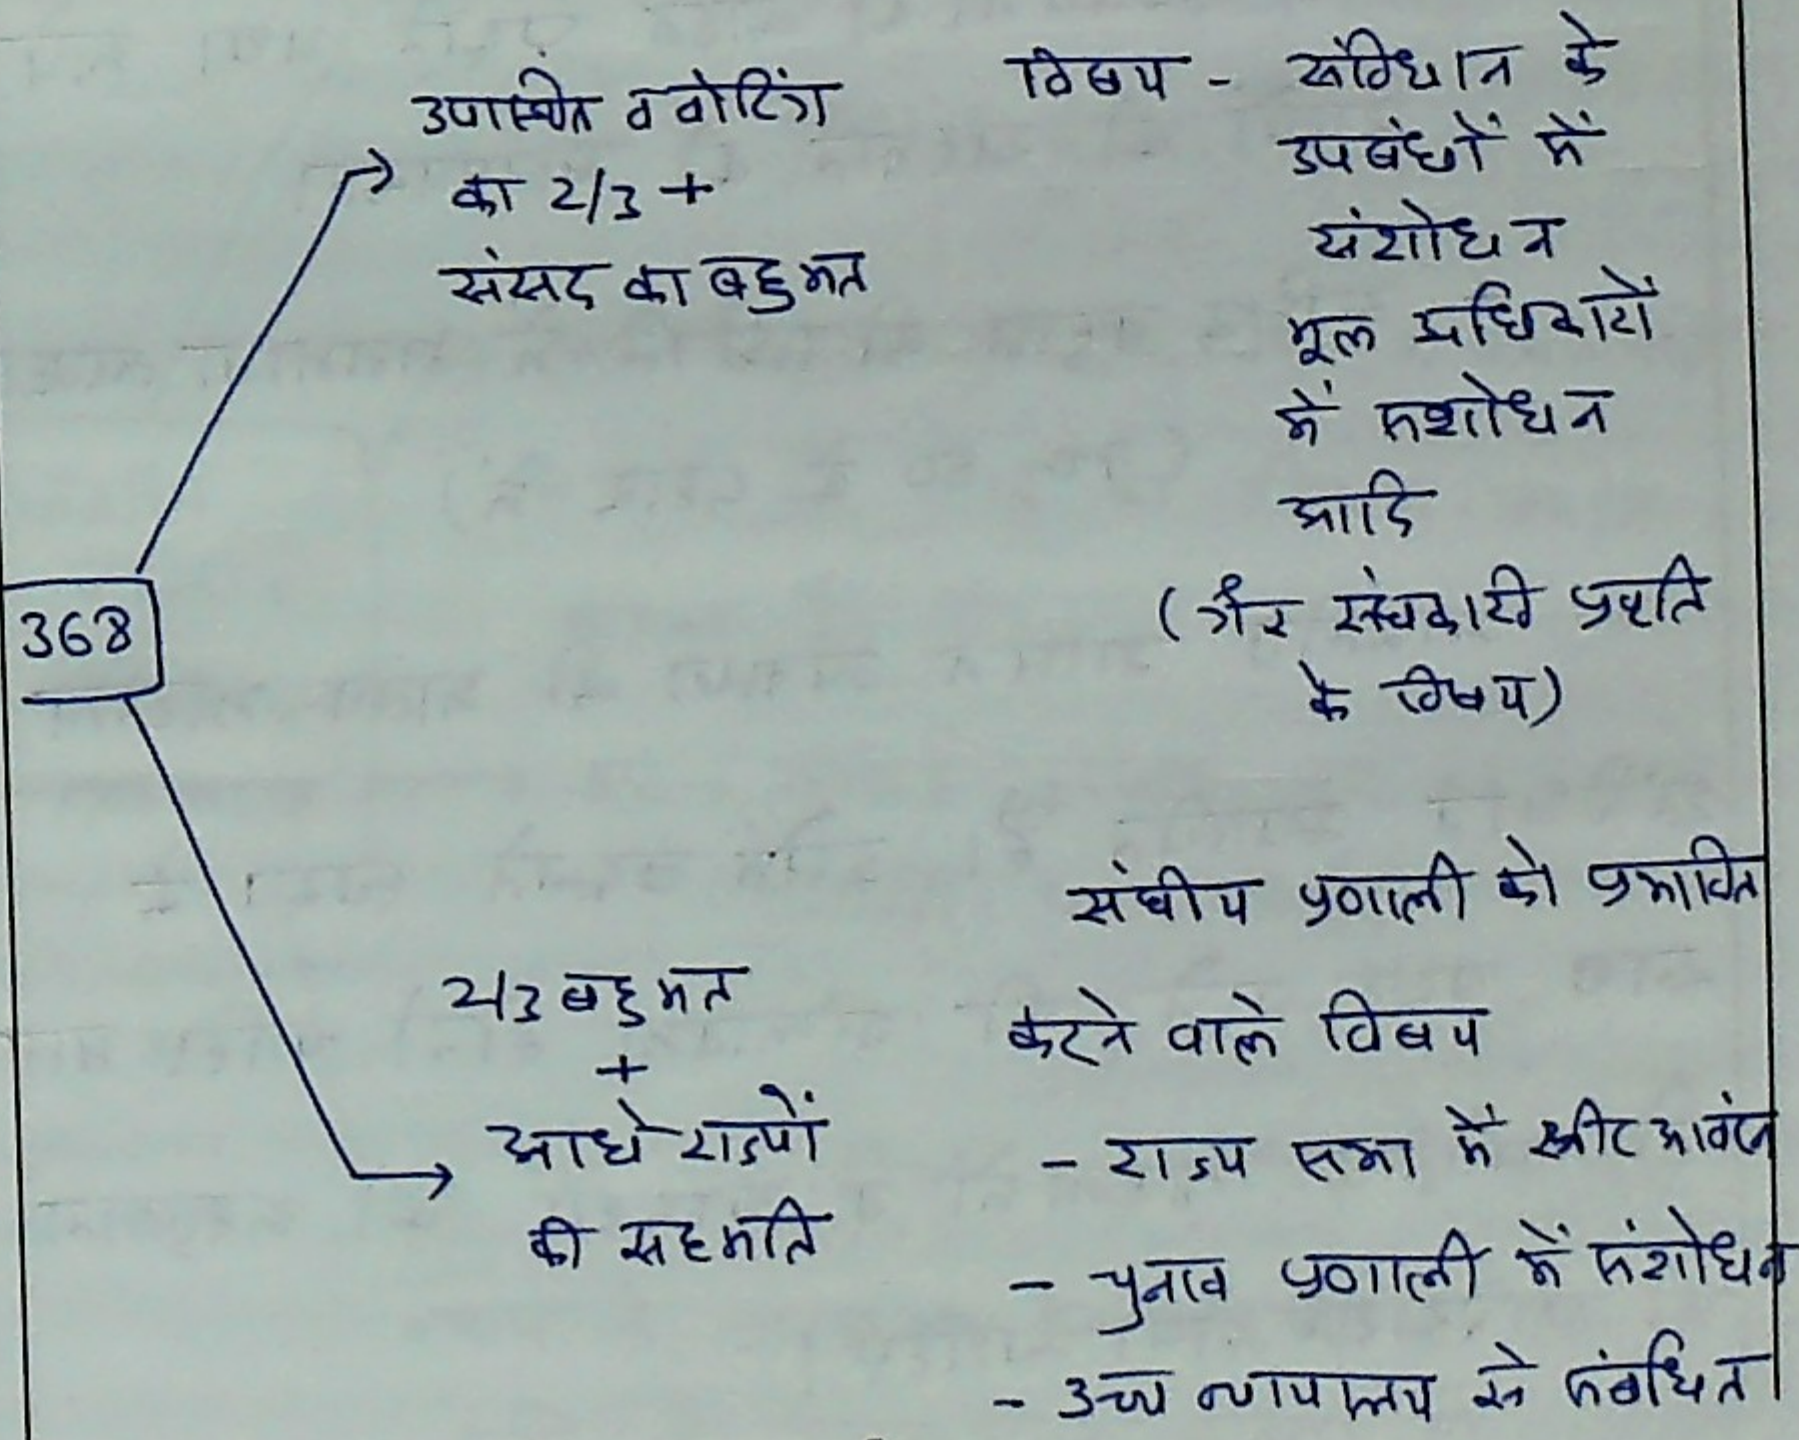 उपस्थित व वोटिंग
का 2/3 +
संसद का बहुमत
विषय - संविधान के
उपबंधों में
संशोधन
मूल अधिकारों
में संशोधन
आदि
(गैर संघकारी प्रवृति
के विषय)
368
2/3 बहुमत
+
आधे राज्यों
की सहमति
संघीय प्रणाली को प्रभावित
करने वाले विषय
- राज्य सभा में सीट आवंटन
- चुनाव प्रणाली में संशोधन
- उच्च न्यायालय से संबधित